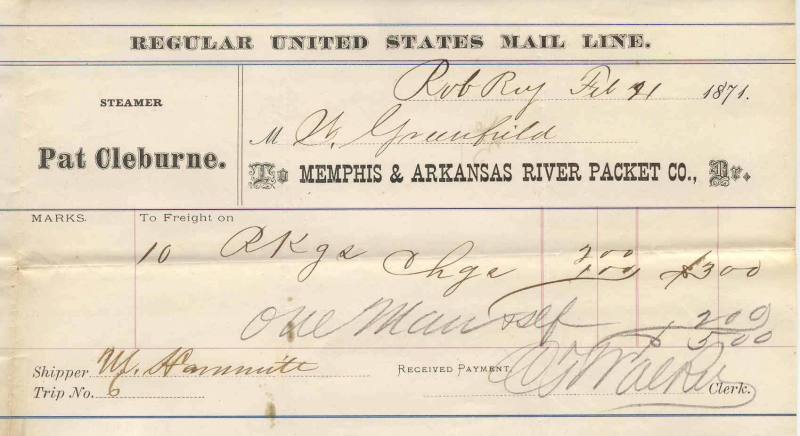 REGULAR UNITED STATES MAIL LINE.
STEAMER
Pat Cleburne.
Rob Roy Feb 21 1871.
M W. Greenfield
To MEMPHIS & ARKANSAS RIVER PACKET CO., Dr.
MARKS. To Freight on
10 PKgs 200
Chgs 100 $3 00
One Man & self 2 00
5 00
Shipper M. Hammitt
RECEIVED PAYMENT, Walker Clerk.
Trip No. 6